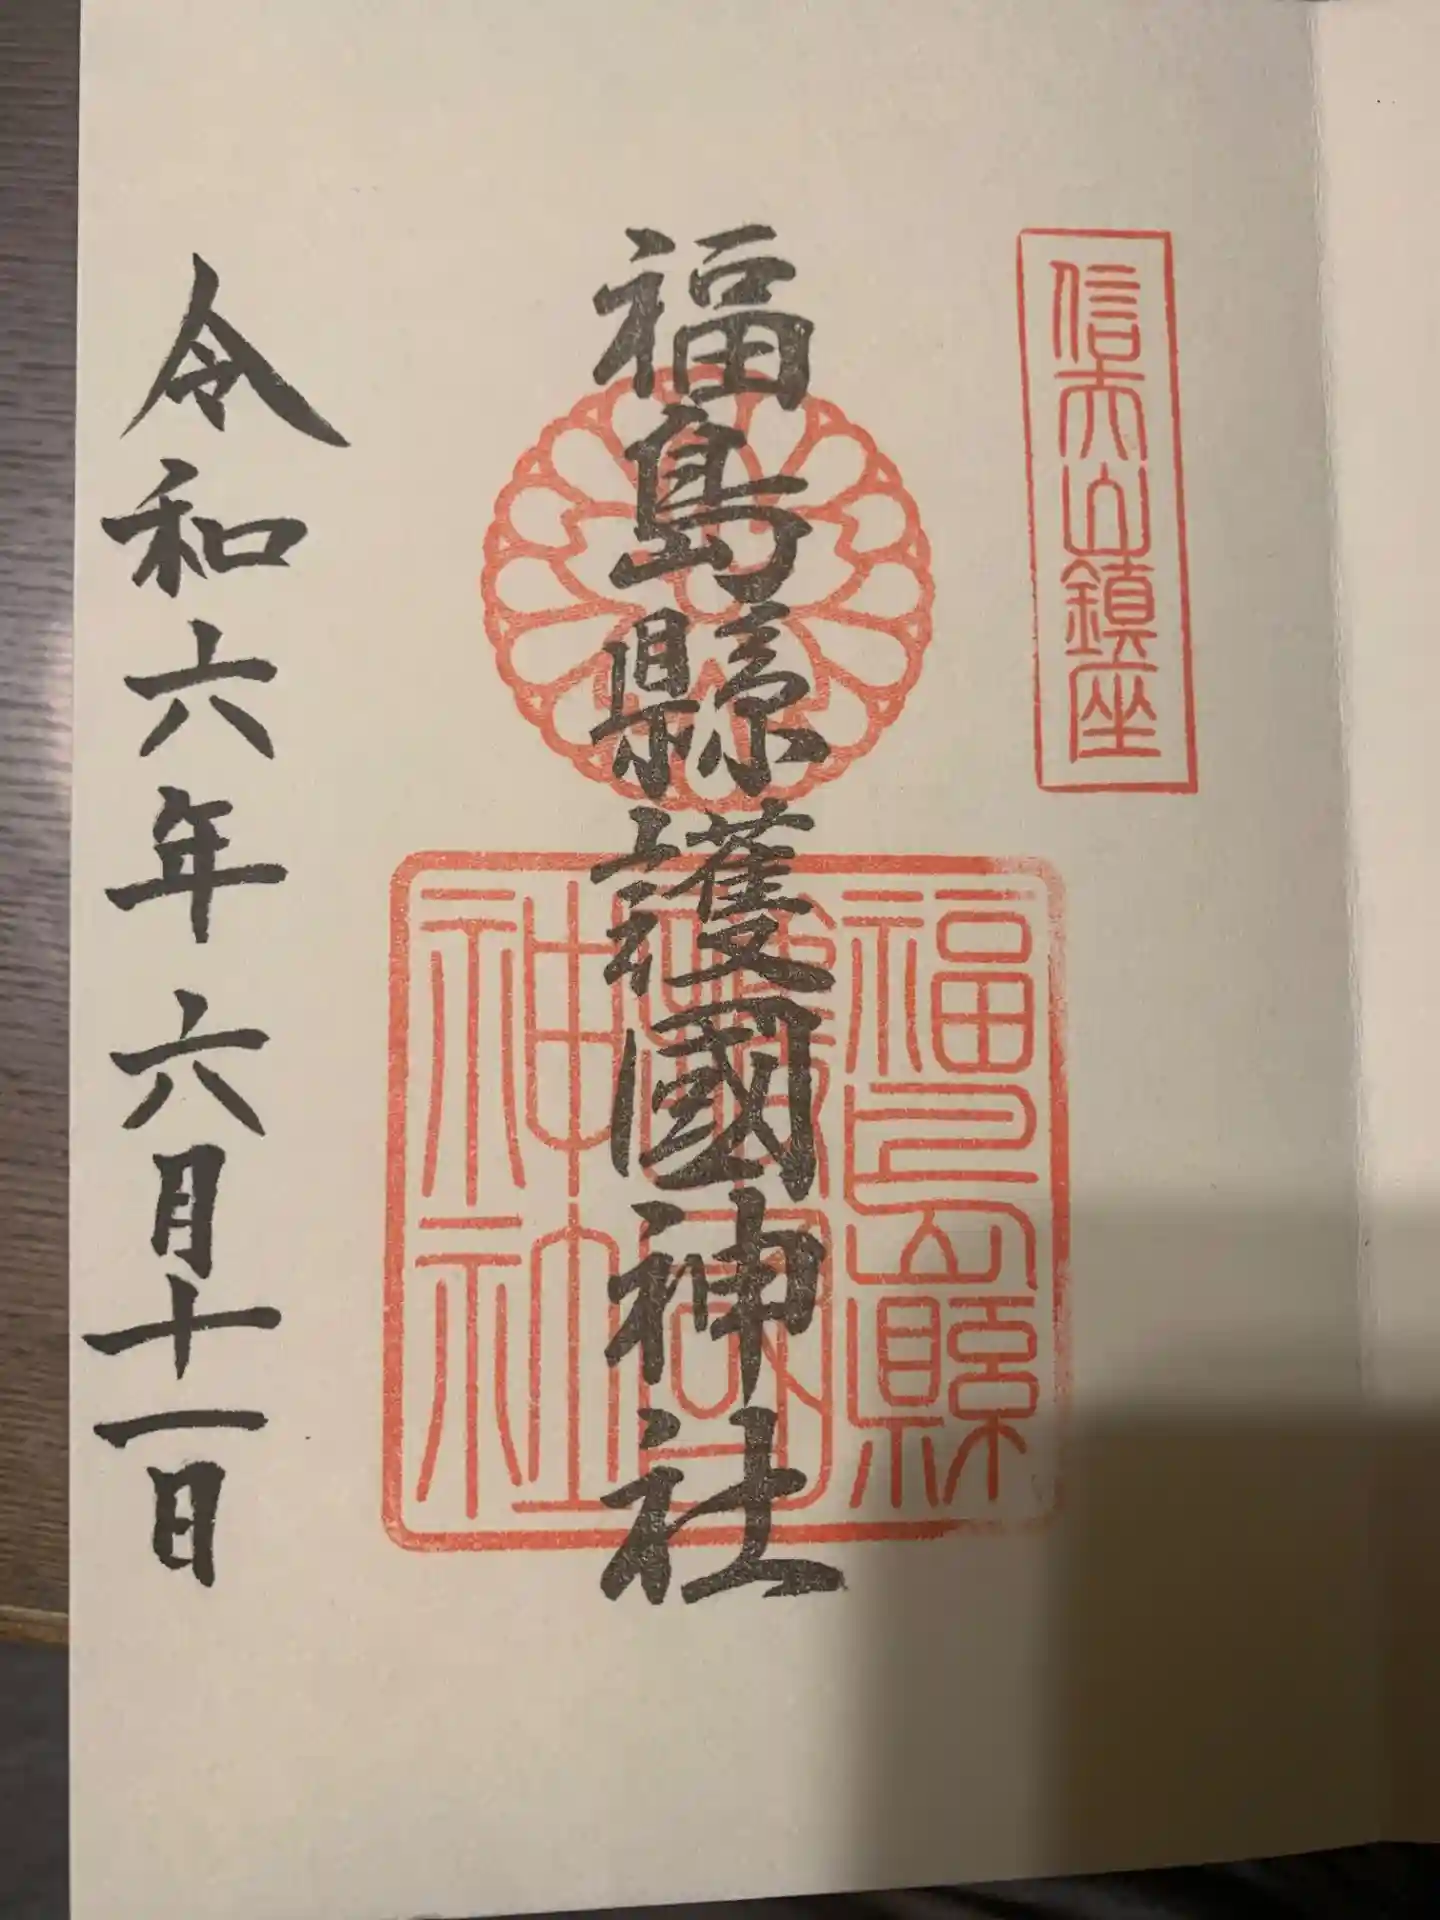 信夫山鎮座
福島縣護國神社
福島縣
護國
神社
令和六年六月十一日